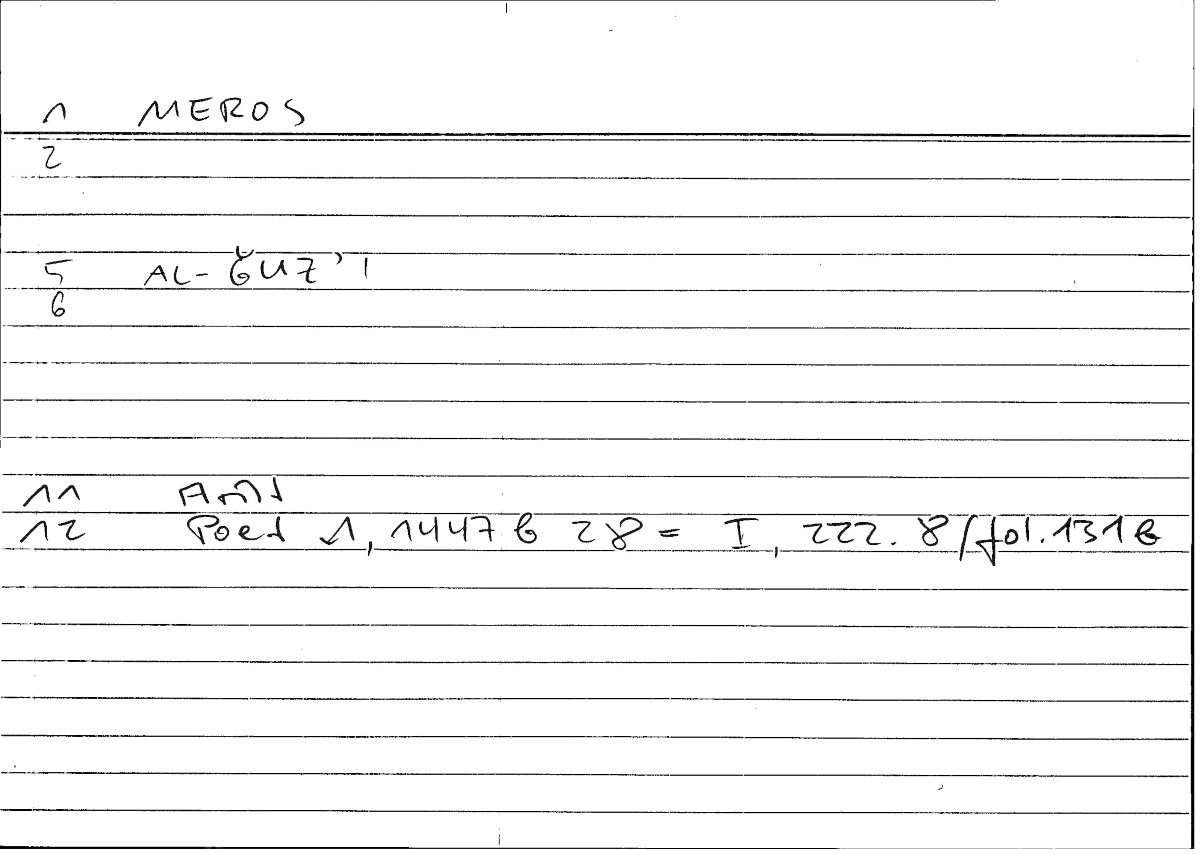 1 MEROS
2
5 AL-ǦUZ'I
6
11 Arist
12 Poet 1, 1447 b 28 = I, 222.8/fol.131b